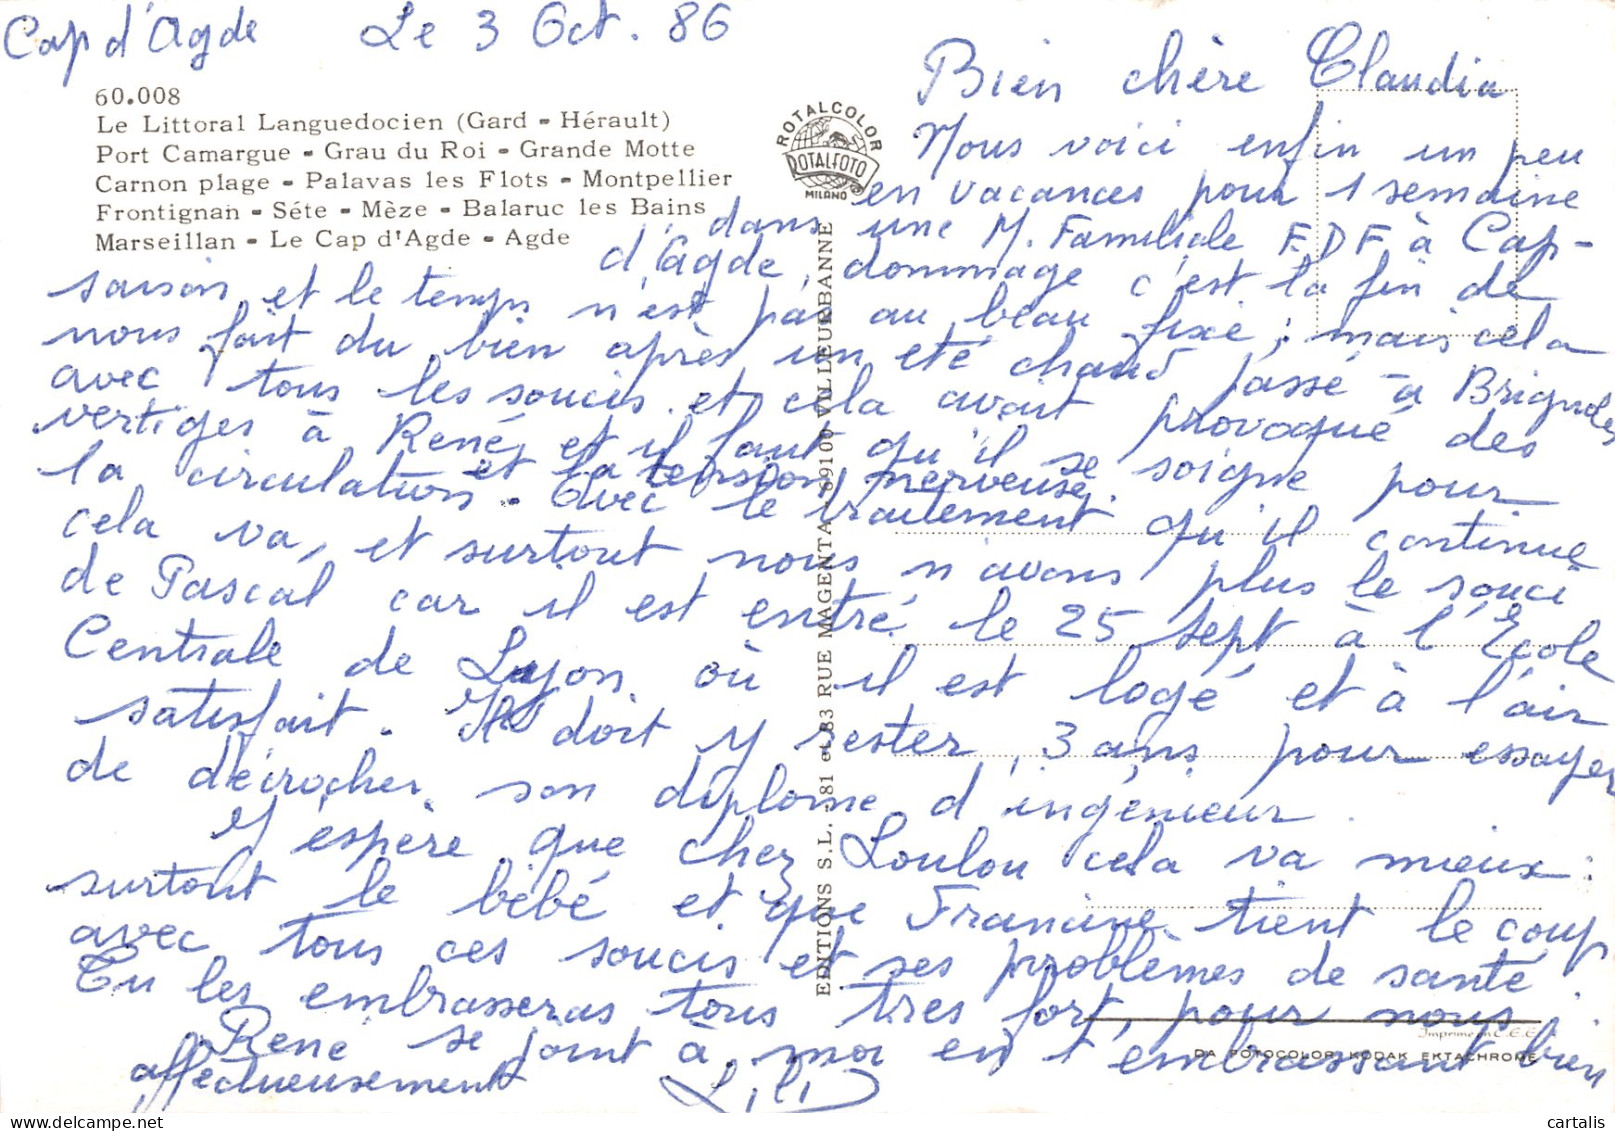 Cap d'Agde Le 3 Oct. 86
60.008
Le Littoral Languedocien (Gard - Hérault)
Port Camargue - Grau du Roi - Grande Motte
Carnon plage - Palavas les Flots - Montpellier
Frontignan - Séte - Mèze - Balaruc les Bains
Marseillan - Le Cap d'Agde - Agde
ROTALCOLOR
ROTALFOTO
MILANO
Bien chère Claudia
Nous voici enfin un peu
en vacances pour 1 semaine
dans une M. Familiale E.D.F. à Cap-
d'Agde, dommage c'est la fin de
saison et le temps n'est pas au beau fixe ; mais cela
nous fait du bien après un été chaud passé à Brignoles
avec tous les soucis et cela avait provoqué des
vertiges à René, et il faut qu'il se soigne pour
la circulation et la tension nerveuse.
Avec le traitement qu'il continue
cela va, et surtout nous n'avons plus le souci
de Pascal car il est entré le 25 sept à l'École
Centrale de Lyon où il est logé et à l'air
satisfait. Il doit y rester 3 ans pour essayer
de décrocher son diplome d'ingénieur.
J'espère que chez Loulou cela va mieux :
surtout le bébé et que Francine tient le coup
avec tous ces soucis et ses problèmes de santé.
Tu les embrasseras tous très fort, pour nous
René se joint à moi en t'embrassant bien
affectueusement Lili
EDITIONS S.L. - 81 et 83 RUE MAGENTA - 69100 VILLEURBANNE
Imprimé en C.E.E.
DA FOTOCOLOR KODAK EKTACHROME
cartalis